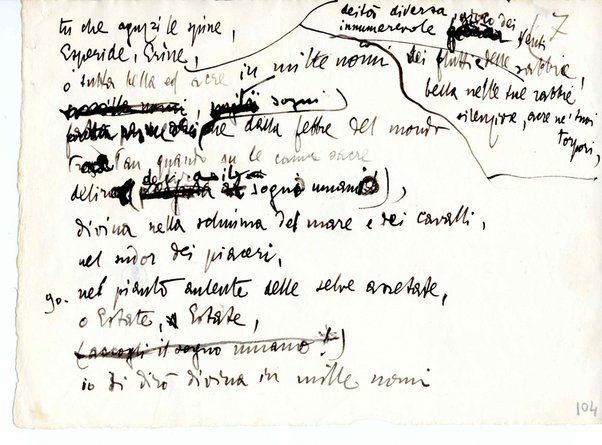 7
deità diversa
innumerevole gioco dei venti
dei flutti e delle sabbie,
bella nelle sue rabbie
silenzïose, acre ne' tuoi
torpori,
tu che aguzzi le spine,
Esperide, Erine,
o tutta bella ed acre in mille nomi
sogni)
che dalla febre del mondo
Tan quando su le canne sacre
delira (delira il sogno umano),
divina nella schiuma del mare e dei cavalli,
nel sudor dei piaceri,
90. nel pianto aulente delle selve assetate,
o Estate, Estate,
(accogli il sogno umano!)
io ti dirò divina in mille nomi
104